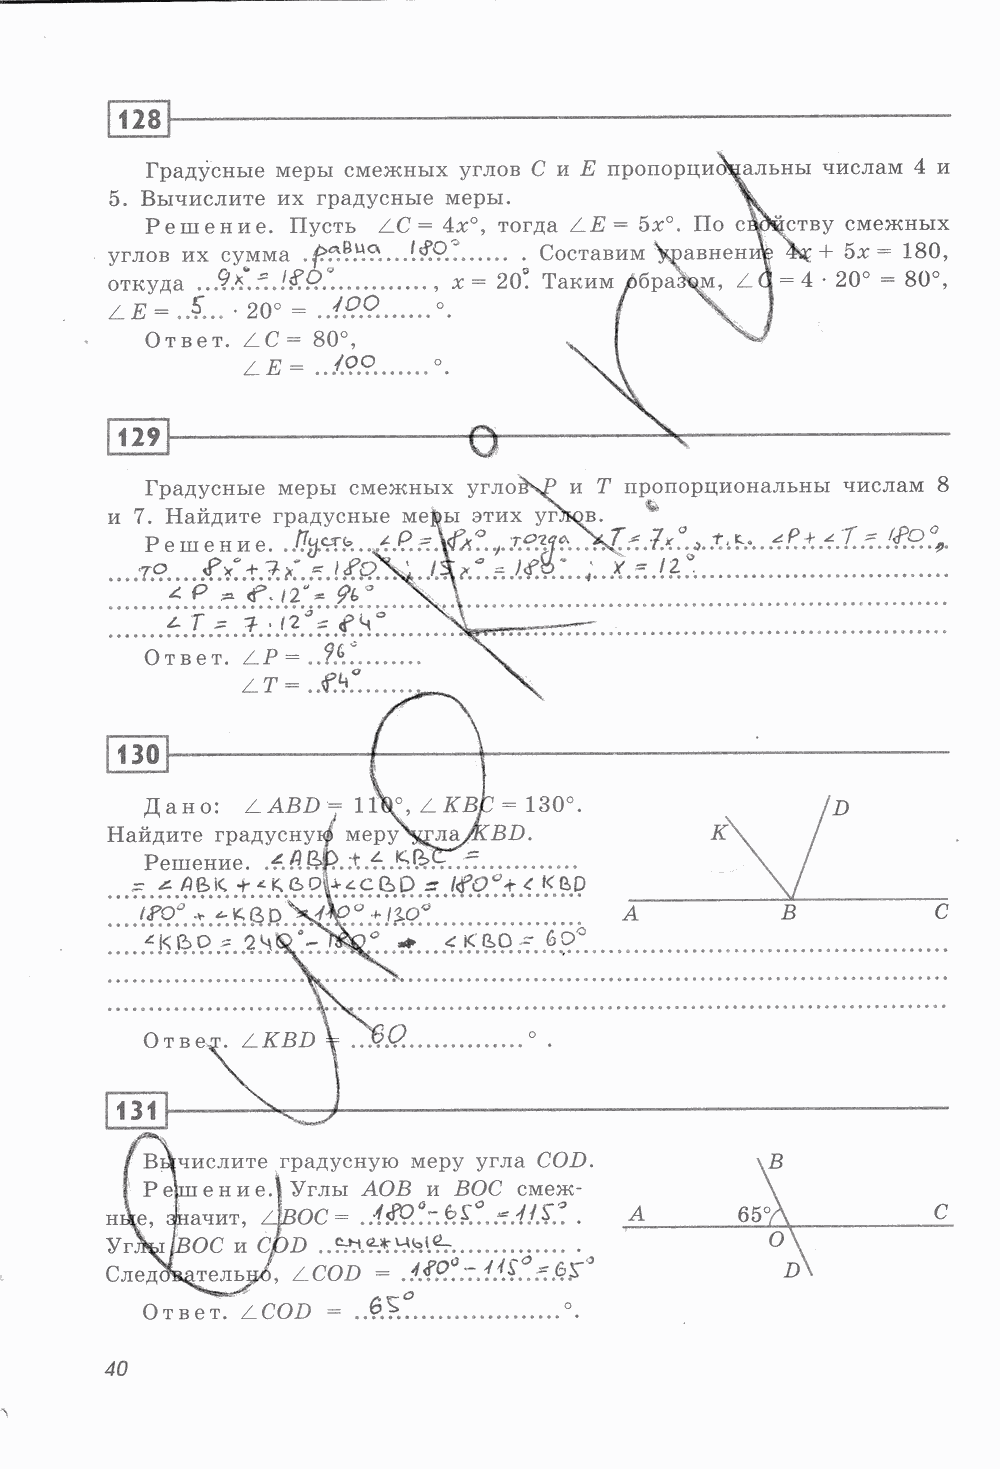 128
Градусные меры смежных углов C и E пропорциональны числам 4 и
5. Вычислите их градусные меры.
Решение. Пусть ∠C = 4x°, тогда ∠E = 5x°. По свойству смежных
углов их сумма равна 180°. Составим уравнение 4x + 5x = 180,
откуда 9x° = 180°, x = 20°. Таким образом, ∠C = 4 · 20° = 80°,
∠E = 5 · 20° = 100°.
Ответ. ∠C = 80°,
∠E = 100°.
129
Градусные меры смежных углов P и T пропорциональны числам 8
и 7. Найдите градусные меры этих углов.
Решение. Пусть ∠P = 8x°, тогда ∠T = 7x°, т.к. ∠P + ∠T = 180°,
то 8x° + 7x° = 180°; 15x° = 180°; x = 12°.
∠P = 8 · 12° = 96°
∠T = 7 · 12° = 84°
Ответ. ∠P = 96°
∠T = 84°
130
Дано: ∠ABD = 110°, ∠KBC = 130°.
Найдите градусную меру угла KBD.
Решение. ∠ABD + ∠KBC =
= ∠ABK + ∠KBD + ∠CBD = 180° + ∠KBD
180° + ∠KBD = 110° + 130°
∠KBD = 240° - 180° ∠KBD = 60°
Ответ. ∠KBD = 60°.
K
D
A
B
C
131
Вычислите градусную меру угла COD.
Решение. Углы AOB и BOC смеж-
ные, значит, ∠BOC = 180° - 65° = 115°.
Углы BOC и COD смежные.
Следовательно, ∠COD = 180° - 115° = 65°
Ответ. ∠COD = 65°.
B
A
65°
C
O
D
40